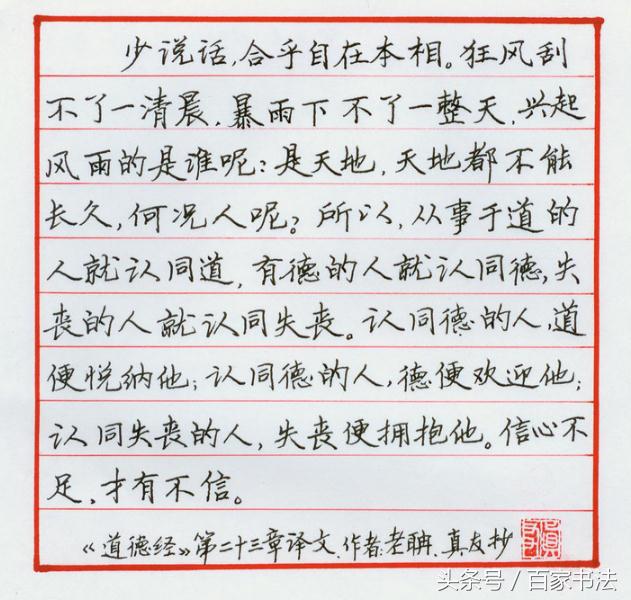 少说话,合乎自在本相。狂风刮
不了一清晨,暴雨下不了一整天,兴起
风雨的是谁呢:是天地,天地都不能
长久,何况人呢?所以,从事于道的
人就认同道,有德的人就认同德,失
丧的人就认同失丧。认同德的人,道
便悦纳他;认同德的人,德便欢迎他;
认同失丧的人,失丧便拥抱他。信心不
足,才有不信。
《道德经》第二十三章译文.作者:老聃.真友抄
头条号/百家书法